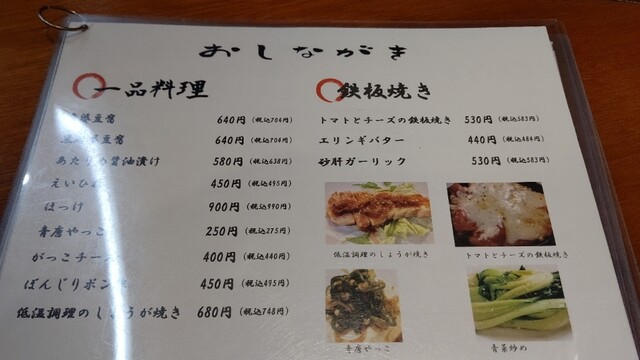 おしながき
一品料理
豆腐 640円 (税込704円)
豆腐 640円 (税込704円)
あたりめ醤油漬け 580円 (税込638円)
えいひれ 450円 (税込495円)
ほっけ 900円 (税込990円)
青唐やっこ 250円 (税込275円)
がっこチーズ 400円 (税込440円)
ぼんじりポン酢 450円 (税込495円)
低温調理のしょうが焼き 680円 (税込748円)
鉄板焼き
トマトとチーズの鉄板焼き 530円 (税込583円)
エリンギバター 440円 (税込484円)
砂肝ガーリック 530円 (税込583円)
低温調理のしょうが焼き
トマトとチーズの鉄板焼き
青唐やっこ
青菜炒め